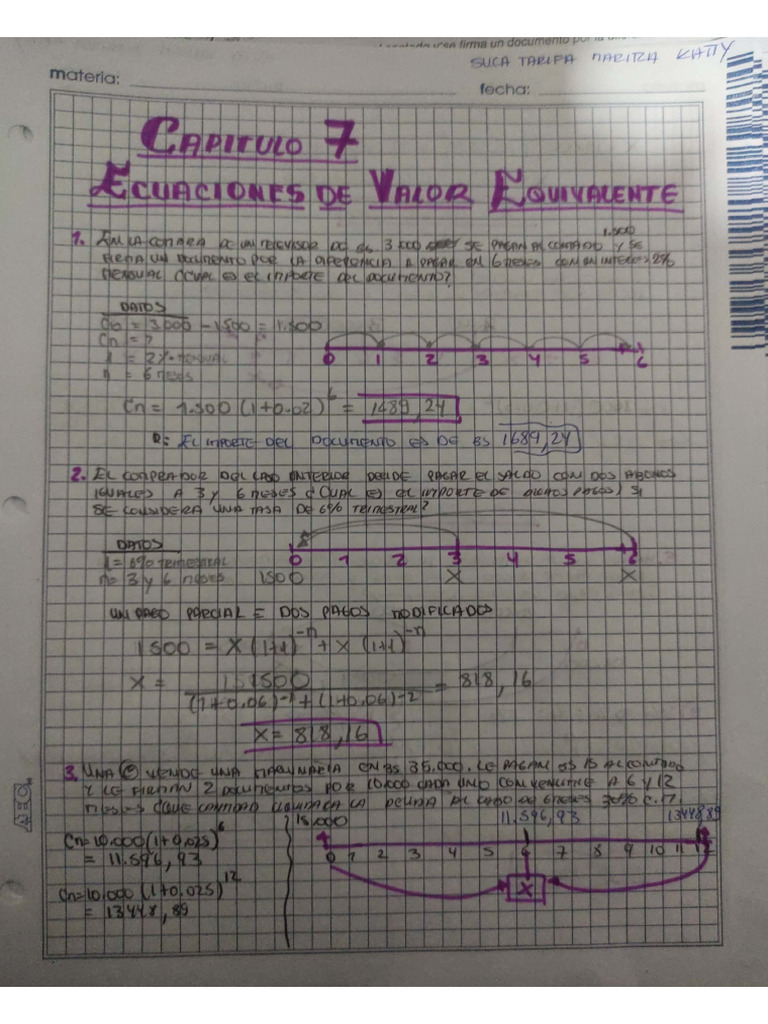 firma un documento por la
SUCA TARIFA MARITZA KATTY
materia:
fecha:
CAPITULO 7
ECUACIONES DE VALOR EQUIVALENTE
1.500
1. EN LA COMPRA DE UN TELEVISOR DE BS 3.000 SE PAGAN AL CONTADO Y SE
FIRMA UN DOCUMENTO POR LA DIFERENCIA A PAGAR EN 6 MESES CON UN INTERES 2%
MENSUAL ¿CUAL ES EL IMPORTE DEL DOCUMENTO?
DATOS
Co = 3000 - 1500 = 1.500
Cn = ?
i = 2% MENSUAL
n = 6 meses
0 1 2 3 4 5 6
Cn = 1.500 (1+0.02)^6 = 1689,24
R= EL IMPORTE DEL DOCUMENTO ES DE BS 1689,24
2. EL COMPRADOR DEL CASO ANTERIOR DECIDE PAGAR EL SALDO CON DOS ABONOS
IGUALES A 3 Y 6 MESES ¿CUAL ES EL IMPORTE DE DICHOS PAGOS) SI
SE CONSIDERA UNA TASA DE 6% TRIMESTRAL?
DATOS
i = 6% TRIMESTRAL
n = 3 y 6 meses
0 1 2 3 4 5 6
1500 X X
UN PAGO PARCIAL = DOS PAGOS MODIFICADOS
1500 = X (1+i)^-n + X (1+i)^-n
X = 1500 / (1+0.06)^-1 + (1+0.06)^-2 = 818,16
X = 818,16
3. UNA © VENDE UNA MAQUINARIA EN BS 35.000. LE PAGAN BS 15 AL CONTADO
Y LE FIRMAN 2 DOCUMENTOS POR 10.000 CADA UNO CON VENCIMIE A 6 Y 12
MESES ¿QUE CANTIDAD LIQUIDARA LA DEUDA AL CABO DE 6 MESES 30% C.M?
15.000 11.596,93 13448,89
Cn=10.000(1+0,025)^6
= 11.596,93
0 1 2 3 4 5 6 7 8 9 10 11 12
X
Cn=10.000(1+0,025)^12
= 13448,89